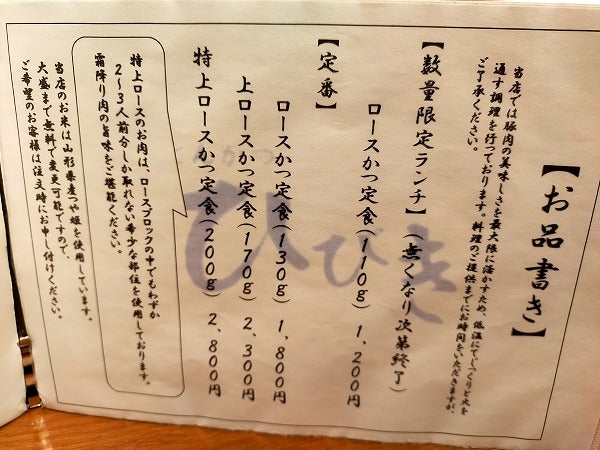 【お品書き】
当店では豚肉の美味しさを最大限に活かすため、低温にてじっくりと火を
通す調理を行っております。料理のご提供までにお時間をいただきますが、
ご了承ください。
【数量限定ランチ】(無くなり次第終了)
ロースかつ定食(110g) 1,200円
【定番】
ロースかつ定食(130g) 1,800円
上ロースかつ定食(170g) 2,300円
特上ロースかつ定食(200g) 2,800円
特上ロースのお肉は、ロースブロックの中でもわずか
2〜3人前分しか取れない希少な部位を使用しております。
霜降り肉の旨味をご堪能ください。
当店のお米は山形県産つや姫を使用しています。
大盛まで無料で変更可能ですので、
ご希望のお客様は注文時にお申し付けください。
ひびき